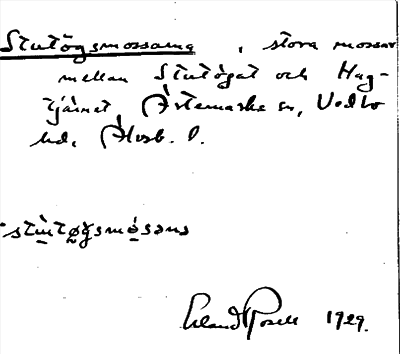 Stutögsmossarna, stora mossar
mellan Stutögat och Hag-
tjärnet, Årtemarks sn, Vedbo
hd, Älvsb. l.
stùtøgsmósana
Erland Rosell 1929.